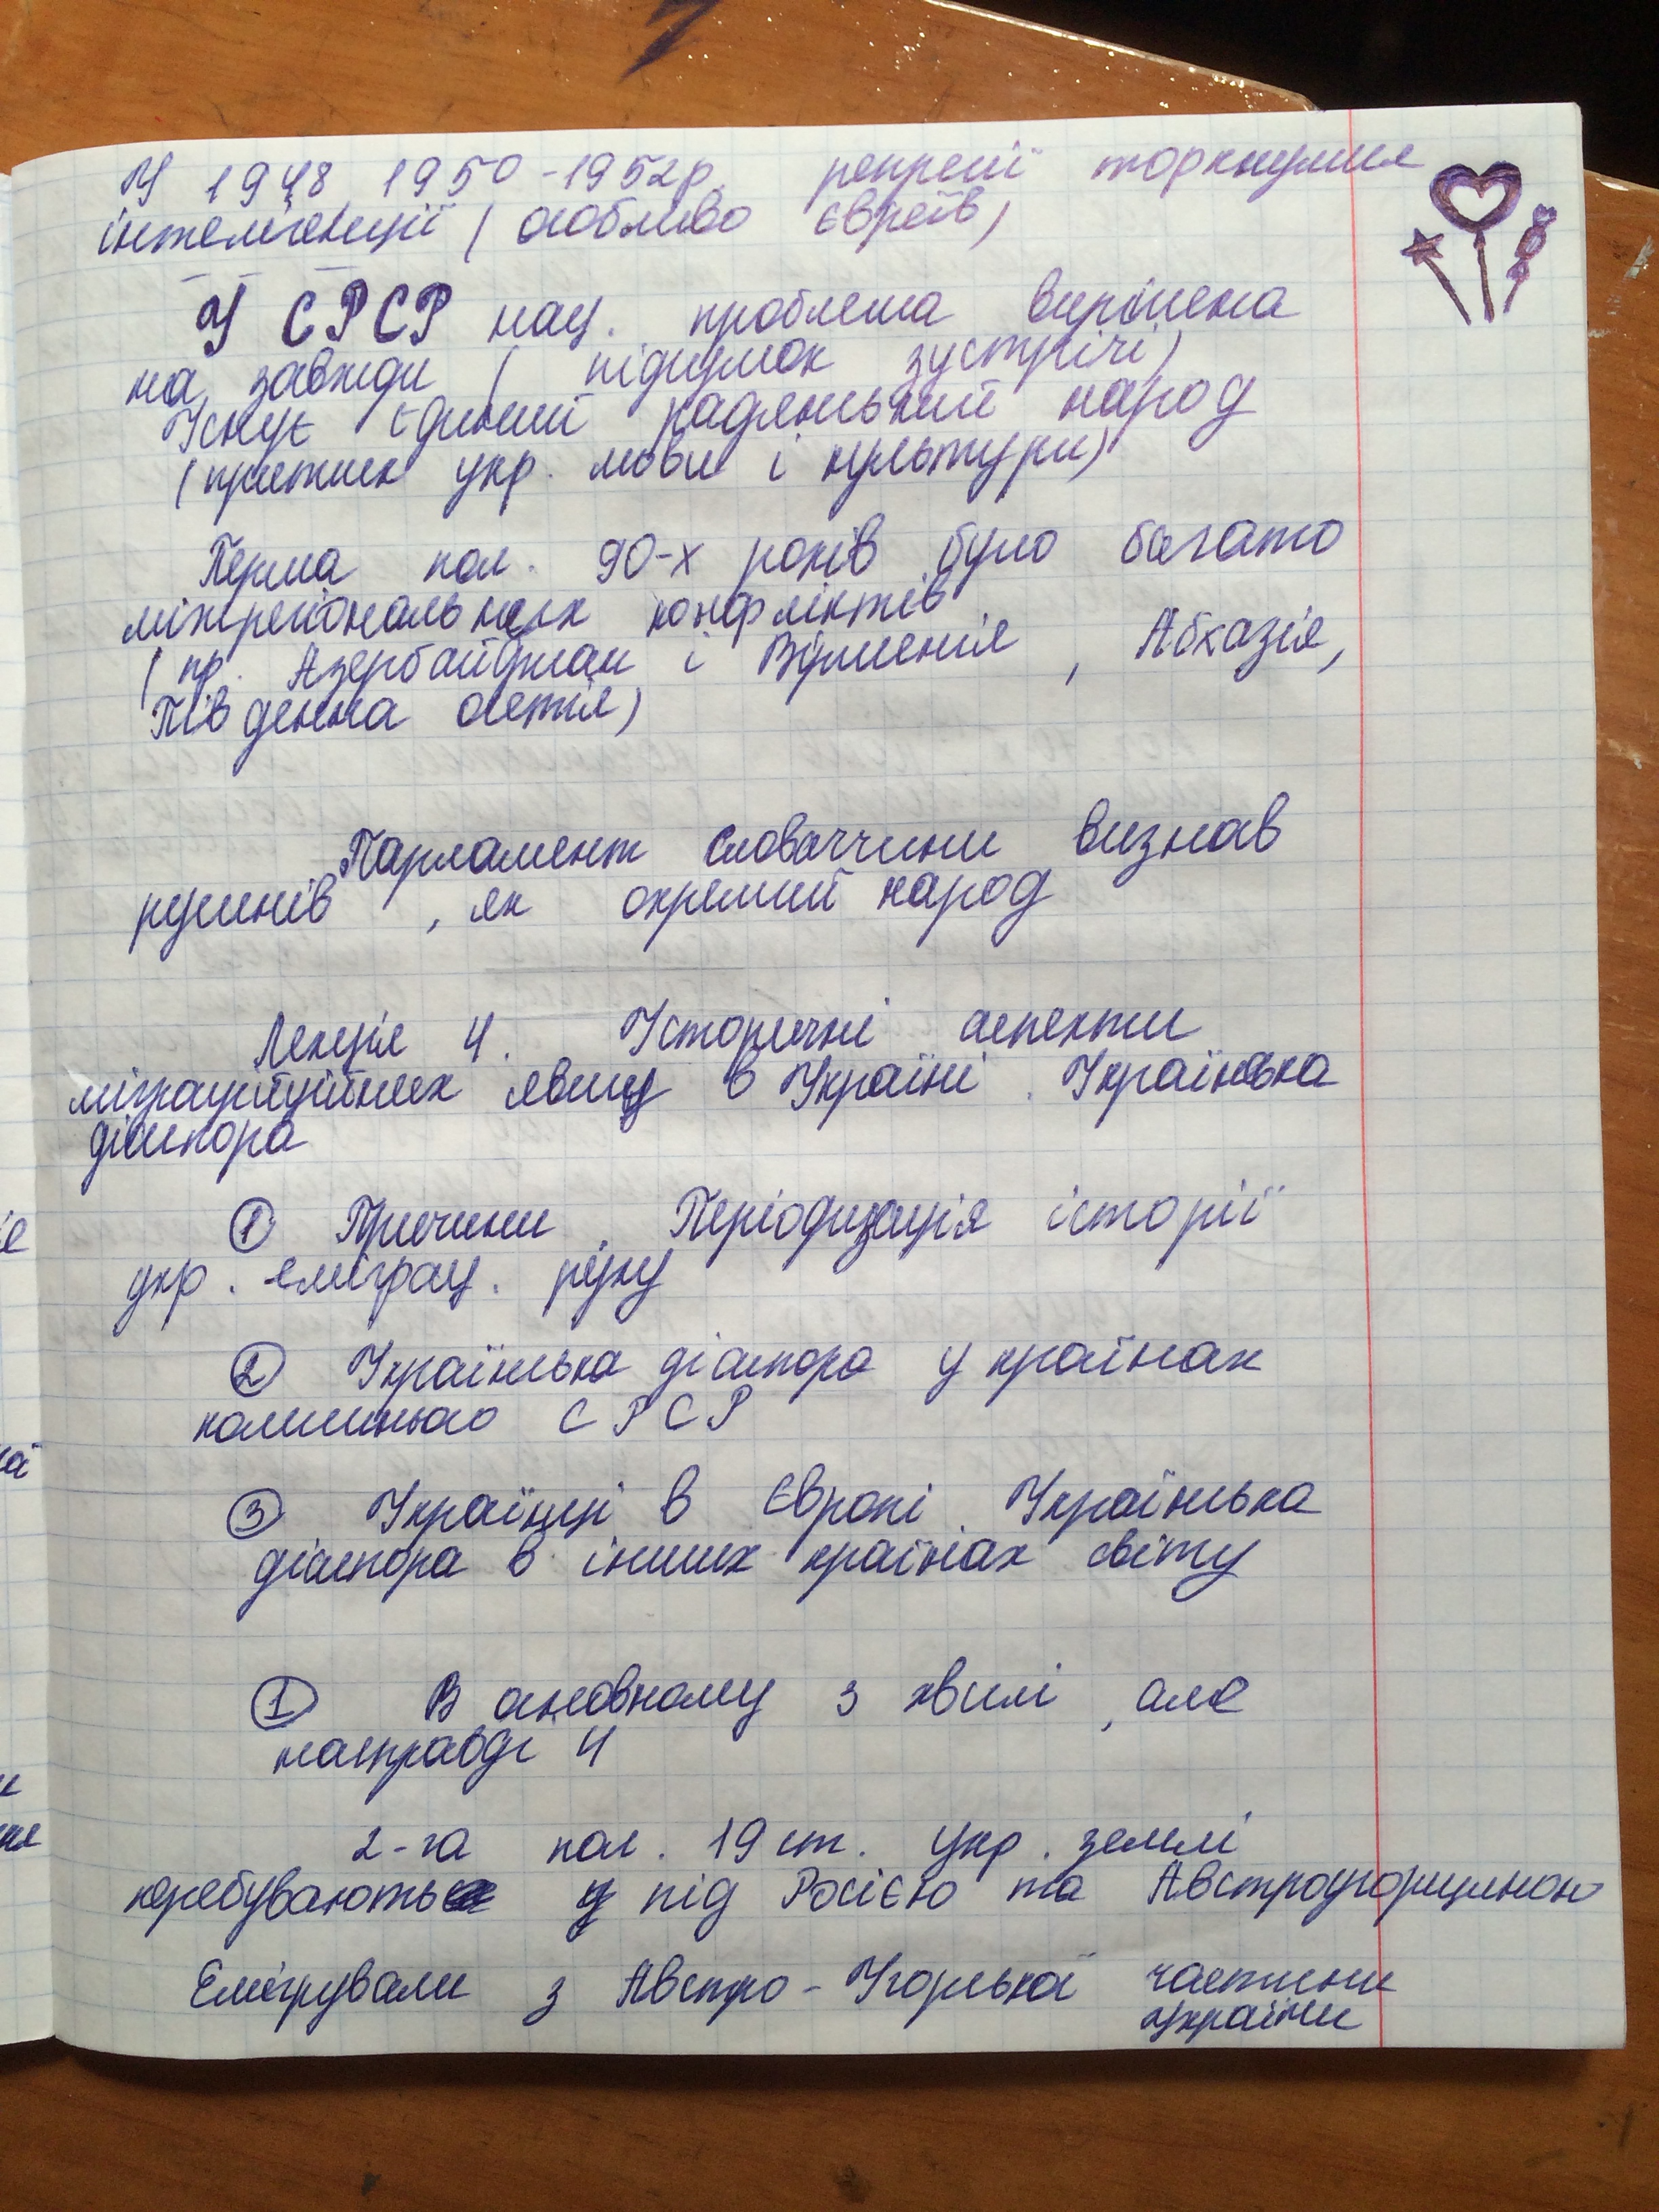 У 1948 1950-1952р. репресії торкнулися
інтелігенції (особливо євреїв)
У СРСР нац. проблема вирішена
на завжди ( підсумок зустрічі)
Існує єдиний радянський народ
(утиск укр. мови і культури)
Перша пол. 90-х років було багато
міжрегіональних конфліктів
( пр. Азербайджан і Вірменія , Абхазія,
Південна осетія)
Парламент словаччини визнав
русинів , як окремий народ
Лекція 4. Історичні аспекти
явищ в Україні . Українська
діаспора
1 Причини . Періодизація історії
укр . еміграц . руху
2 Українська діаспора у країнах
колишнього СРСР
3 Українці в Європі . Українська
діаспора в інших країнах світу
1 В основному 3 хвилі , але
насправді 4
2-га пол . 19 ст. укр . землі
перебувають під Росією та Австроугорщиною
Емігрували з Австро-Угорської частини
України